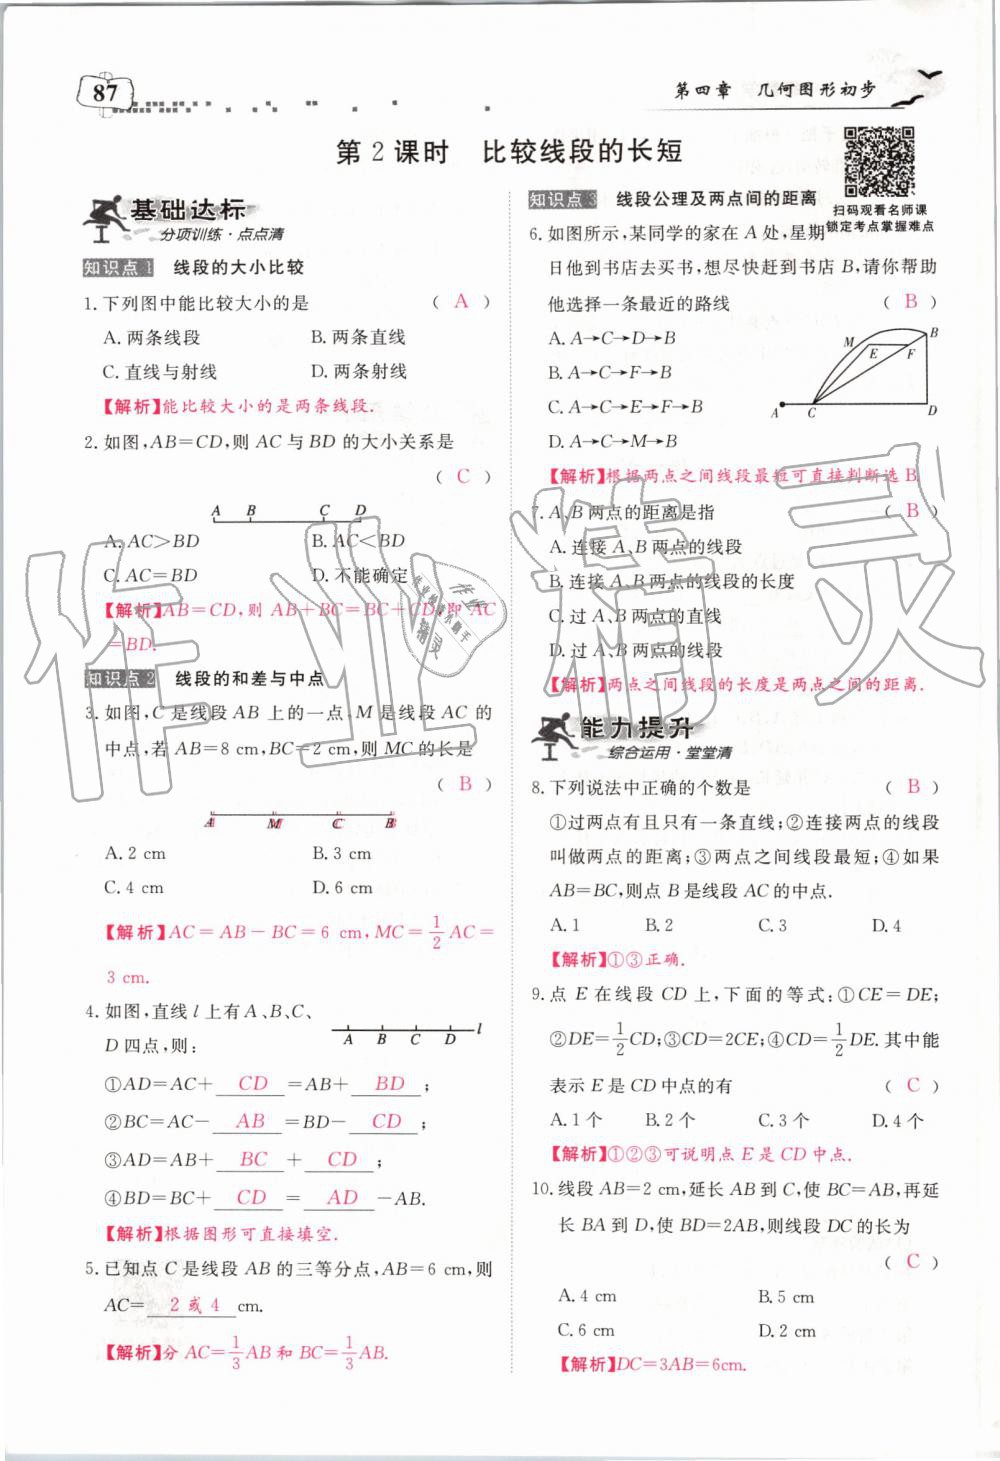 87
第四章 几何图形初步
第2课时 比较线段的长短
基础达标
分项训练·点点清
知识点1 线段的大小比较
1.下列图中能比较大小的是 ( A )
A.两条线段 B.两条直线
C.直线与射线 D.两条射线
【解析】能比较大小的是两条线段.
2.如图,AB=CD,则 AC 与 BD 的大小关系是
( C )
A B C D
A.AC>BD B.AC<BD
C.AC=BD D.不能确定
【解析】AB=CD,则 AB+BC=BC+CD,即 AC
=BD.
知识点2 线段的和差与中点
3.如图,C 是线段 AB 上的一点,M 是线段 AC 的
中点,若 AB=8 cm,BC=2 cm,则 MC 的长是
( B )
A M C B
A.2 cm B.3 cm
C.4 cm D.6 cm
【解析】AC=AB-BC=6 cm,MC=1/2 AC=
3 cm.
4.如图,直线 l 上有 A、B、C、
D 四点,则:
A B C D l
①AD=AC+ CD =AB+ BD ;
②BC=AC- AB =BD- CD ;
③AD=AB+ BC + CD ;
④BD=BC+ CD = AD -AB.
【解析】根据图形可直接填空.
5.已知点 C 是线段 AB 的三等分点,AB=6 cm,则
AC= 2 或 4 cm.
【解析】分 AC=1/3 AB 和 BC=1/3 AB.
知识点3 线段公理及两点间的距离
扫码观看名师课
锁定考点掌握难点
6.如图所示,某同学的家在 A 处,星期
日他到书店去买书,想尽快赶到书店 B,请你帮助
他选择一条最近的路线 ( B )
A.A→C→D→B
B.A→C→F→B
C.A→C→E→F→B
D.A→C→M→B
M B E F A C D
【解析】根据两点之间线段最短可直接判断选 B.
7.A、B 两点的距离是指 ( B )
A.连接 A、B 两点的线段
B.连接 A、B 两点的线段的长度
C.过 A、B 两点的直线
D.过 A、B 两点的线段
【解析】两点之间线段的长度是两点之间的距离.
能力提升
综合运用·堂堂清
8.下列说法中正确的个数是 ( B )
①过两点有且只有一条直线;②连接两点的线段
叫做两点的距离;③两点之间线段最短;④如果
AB=BC,则点 B 是线段 AC 的中点.
A.1 B.2 C.3 D.4
【解析】①③正确.
9.点 E 在线段 CD 上,下面的等式:①CE=DE;
②DE=1/2 CD;③CD=2CE;④CD=1/2 DE.其中能
表示 E 是 CD 中点的有 ( C )
A.1个 B.2个 C.3个 D.4个
【解析】①②③可说明点 E 是 CD 中点.
10.线段 AB=2 cm,延长 AB 到 C,使 BC=AB,再延
长 BA 到 D,使 BD=2AB,则线段 DC 的长为
( C )
A.4 cm B.5 cm
C.6 cm D.2 cm
【解析】DC=3AB=6cm.
作业精灵